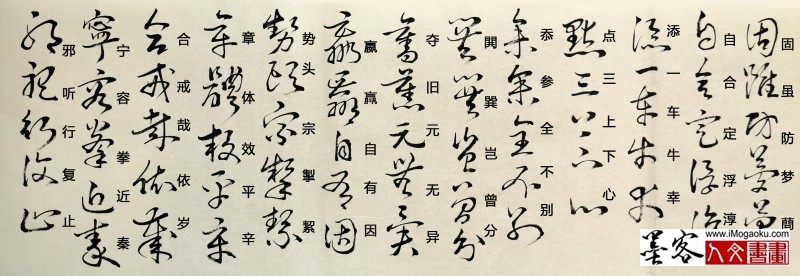 固虽防梦蔄
自合定浮淳
添一车牛幸
点三上下心
忝参全不别
閧巽岂曾分
夺旧元无异
赢羸自有因
势头宗掣絜
章体效平辛
合戒哉依岁
宁容拳近秦
邪听行复止
www.iMogaoku.com
墨客人文書畫